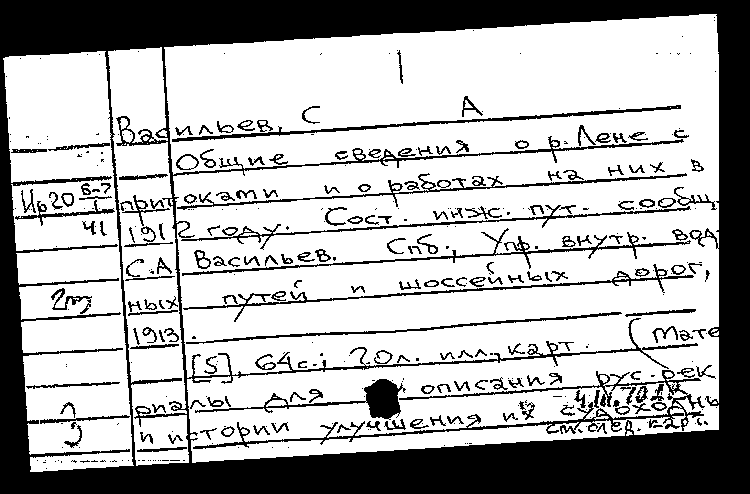 Васильев, С А
Общие сведения о р. Лене с
притоками и о работах на них в
1912 году. Сост. инж. пут. сообщ.
С.А Васильев. Спб., Упр. внутр. вод
ных путей и шоссейных дорог,
1913.
[5], 64с.; 20л. илл., карт. (Мате
риалы для описания рус. рек
и истории улучшения их судоходны
см. след. карт.
Ир20 6-7
1
41
2